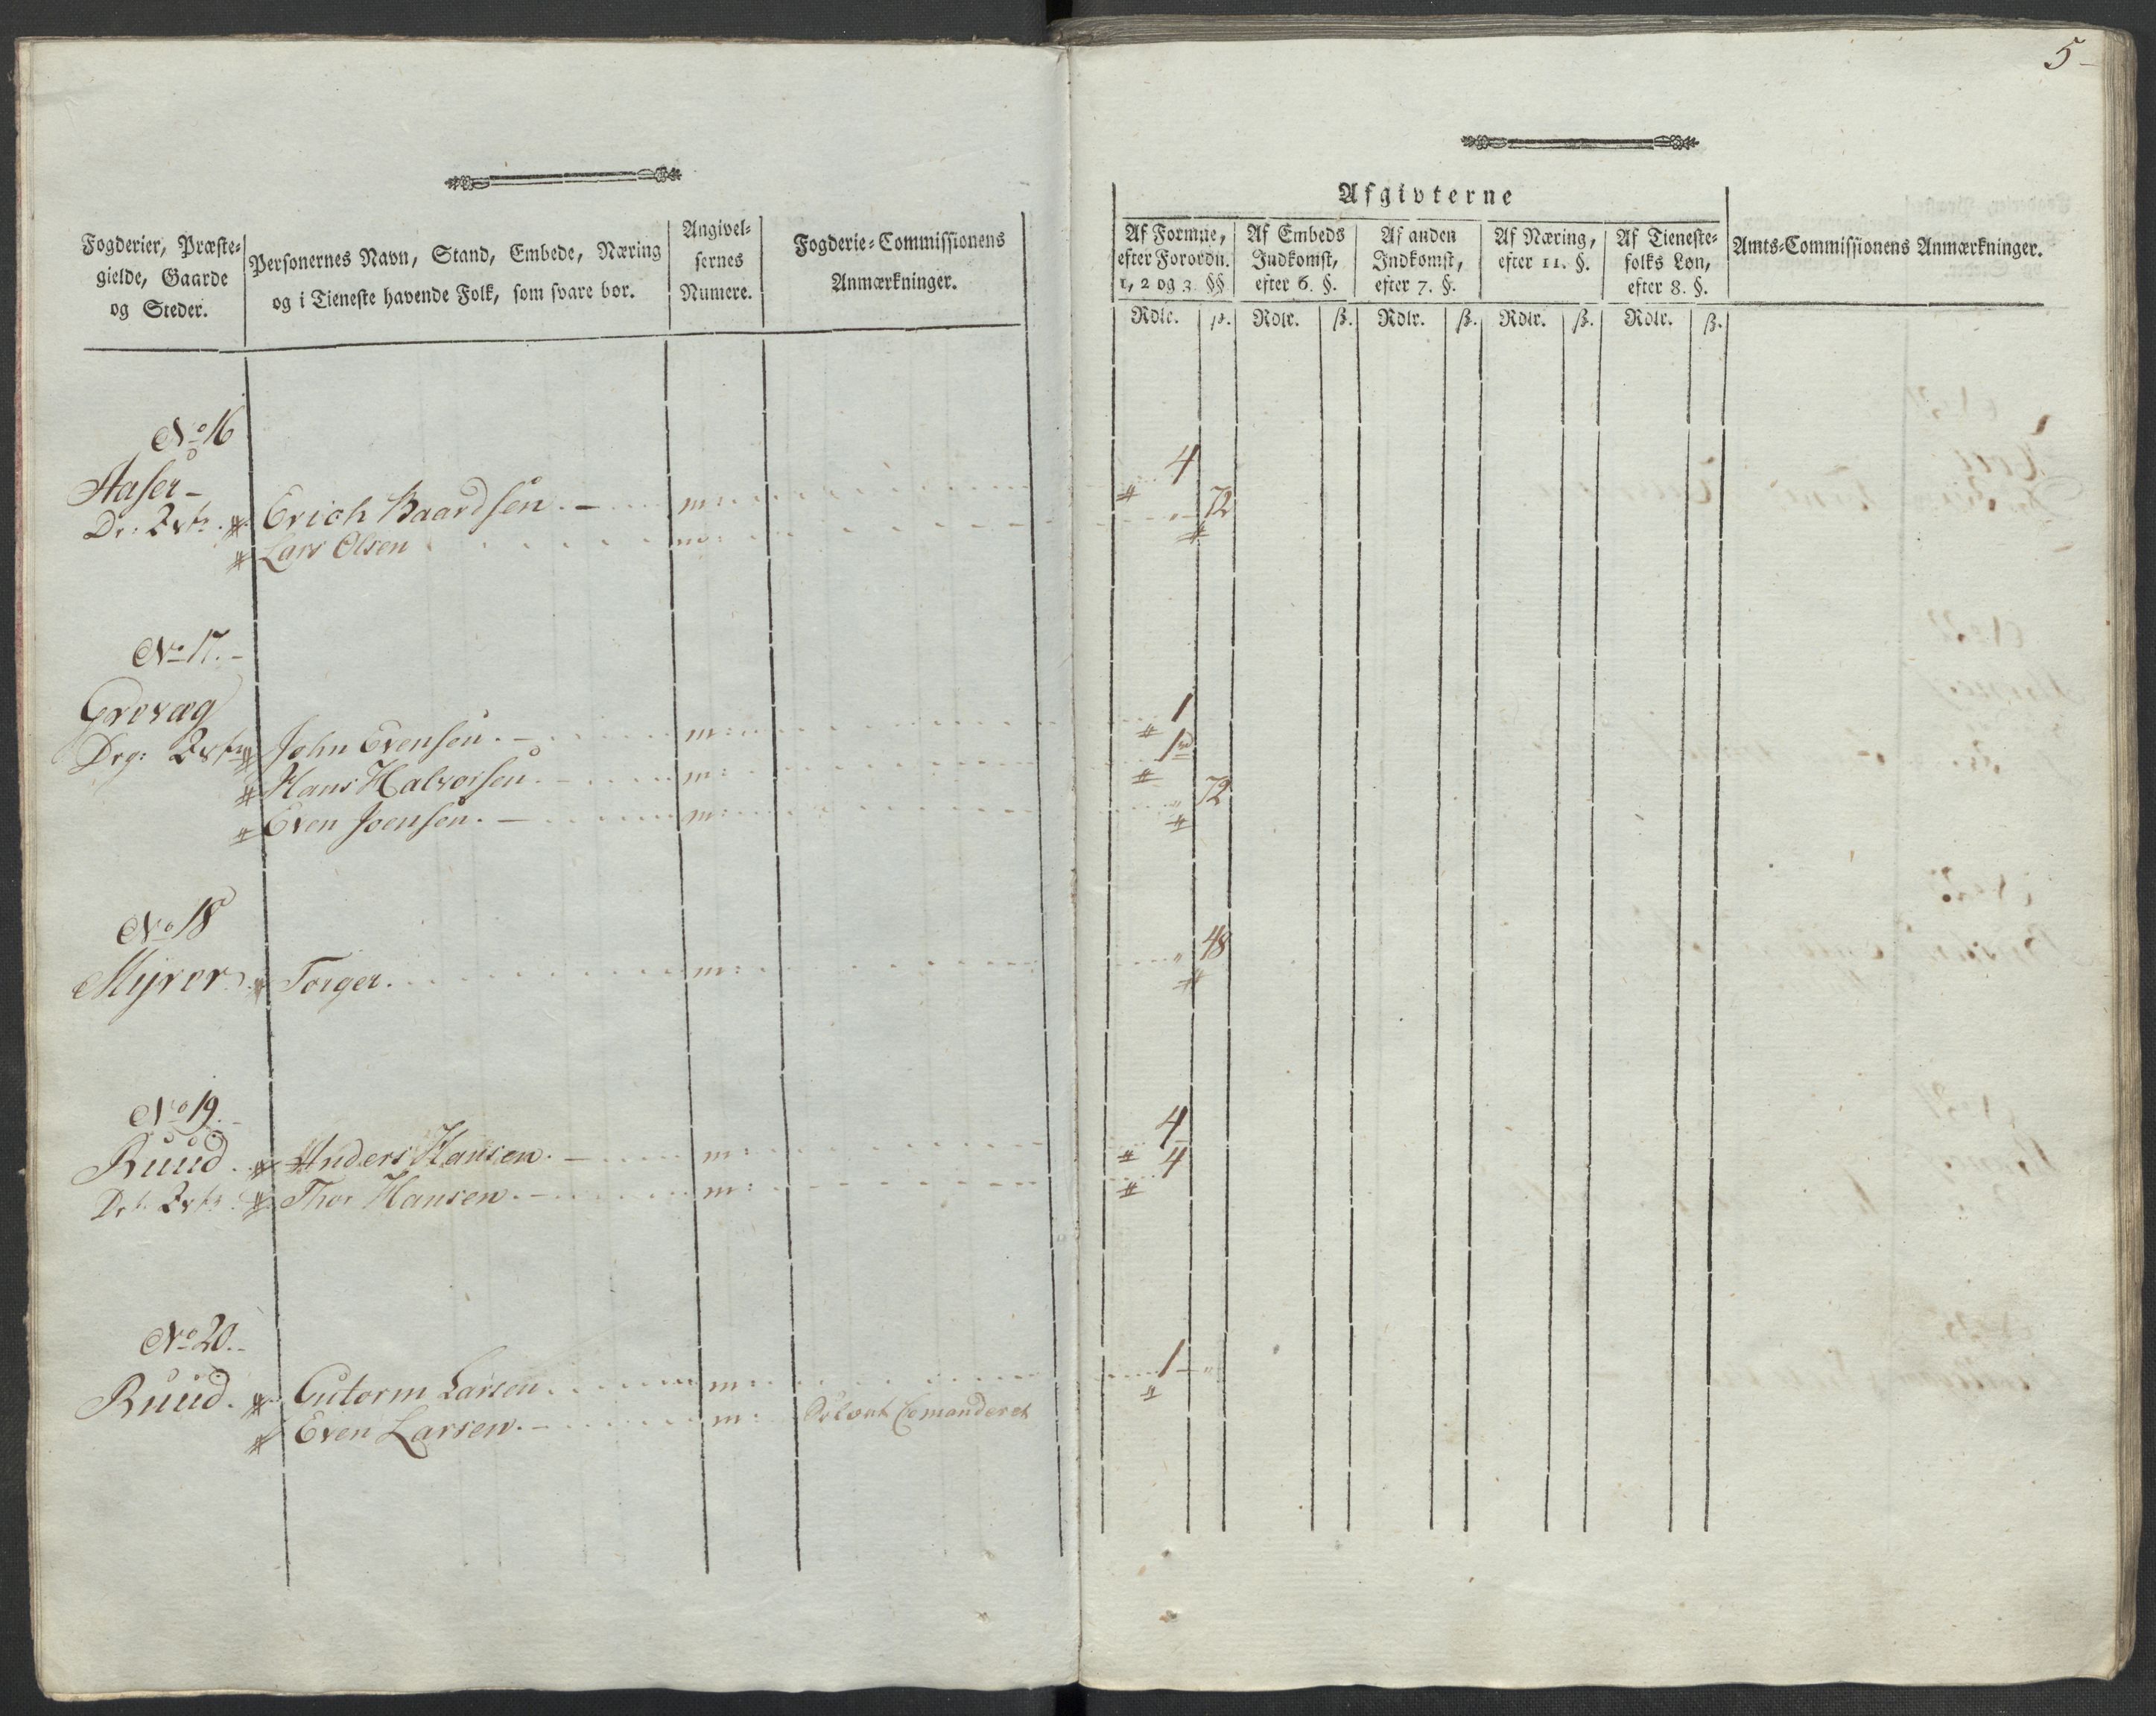 5
Fogderier, Præste-
gielde, Gaarde
og Steder.
Personernes Navn, Stand, Embede, Næring
og i Tieneste havende Folk, som svare bør.
Angivel-
sernes
Numere.
Fogderie-Commissionens
Anmærkninger.
Afgivterne
Af Formue,
efter Forordn.
1, 2 og 3. §§
Af Embeds
Indkomst,
efter 6. §.
Af anden
Indkomst,
efter 7. §.
Af Næring,
efter 11. §.
Af Tieneste-
folks Løn,
efter 8. §.
Amts-Commissionens Anmærkninger.
Rdlr. ß. Rdlr. ß. Rdlr. ß. Rdlr. ß. Rdlr. ß.
No 16
Aaser -
Erich Baardsen. - m: 4
Lars Olsen m: 72
No 17. -
Grovæg
John Evensen. - m: 1
Hans Halvorsen. - m: 1
Even Joensen. - m: " 72
No 18
Myrer Torger. m: " 48
No 19. -
Ruud. Anders Hansen. - m: 4
Thor Hansen. - m: 4
No 20. -
Ruud. Gutorm Larsen. m: 1 - "
Even Larsen. - m: Comanderet